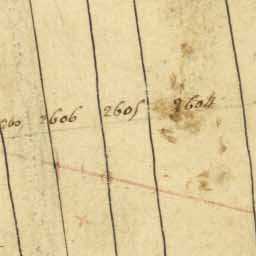 2606 2605 2604